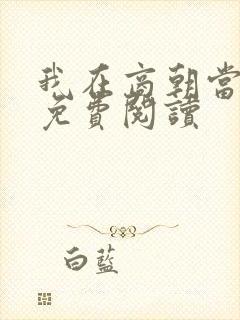 我在高朝當
免費閱讀
白藍